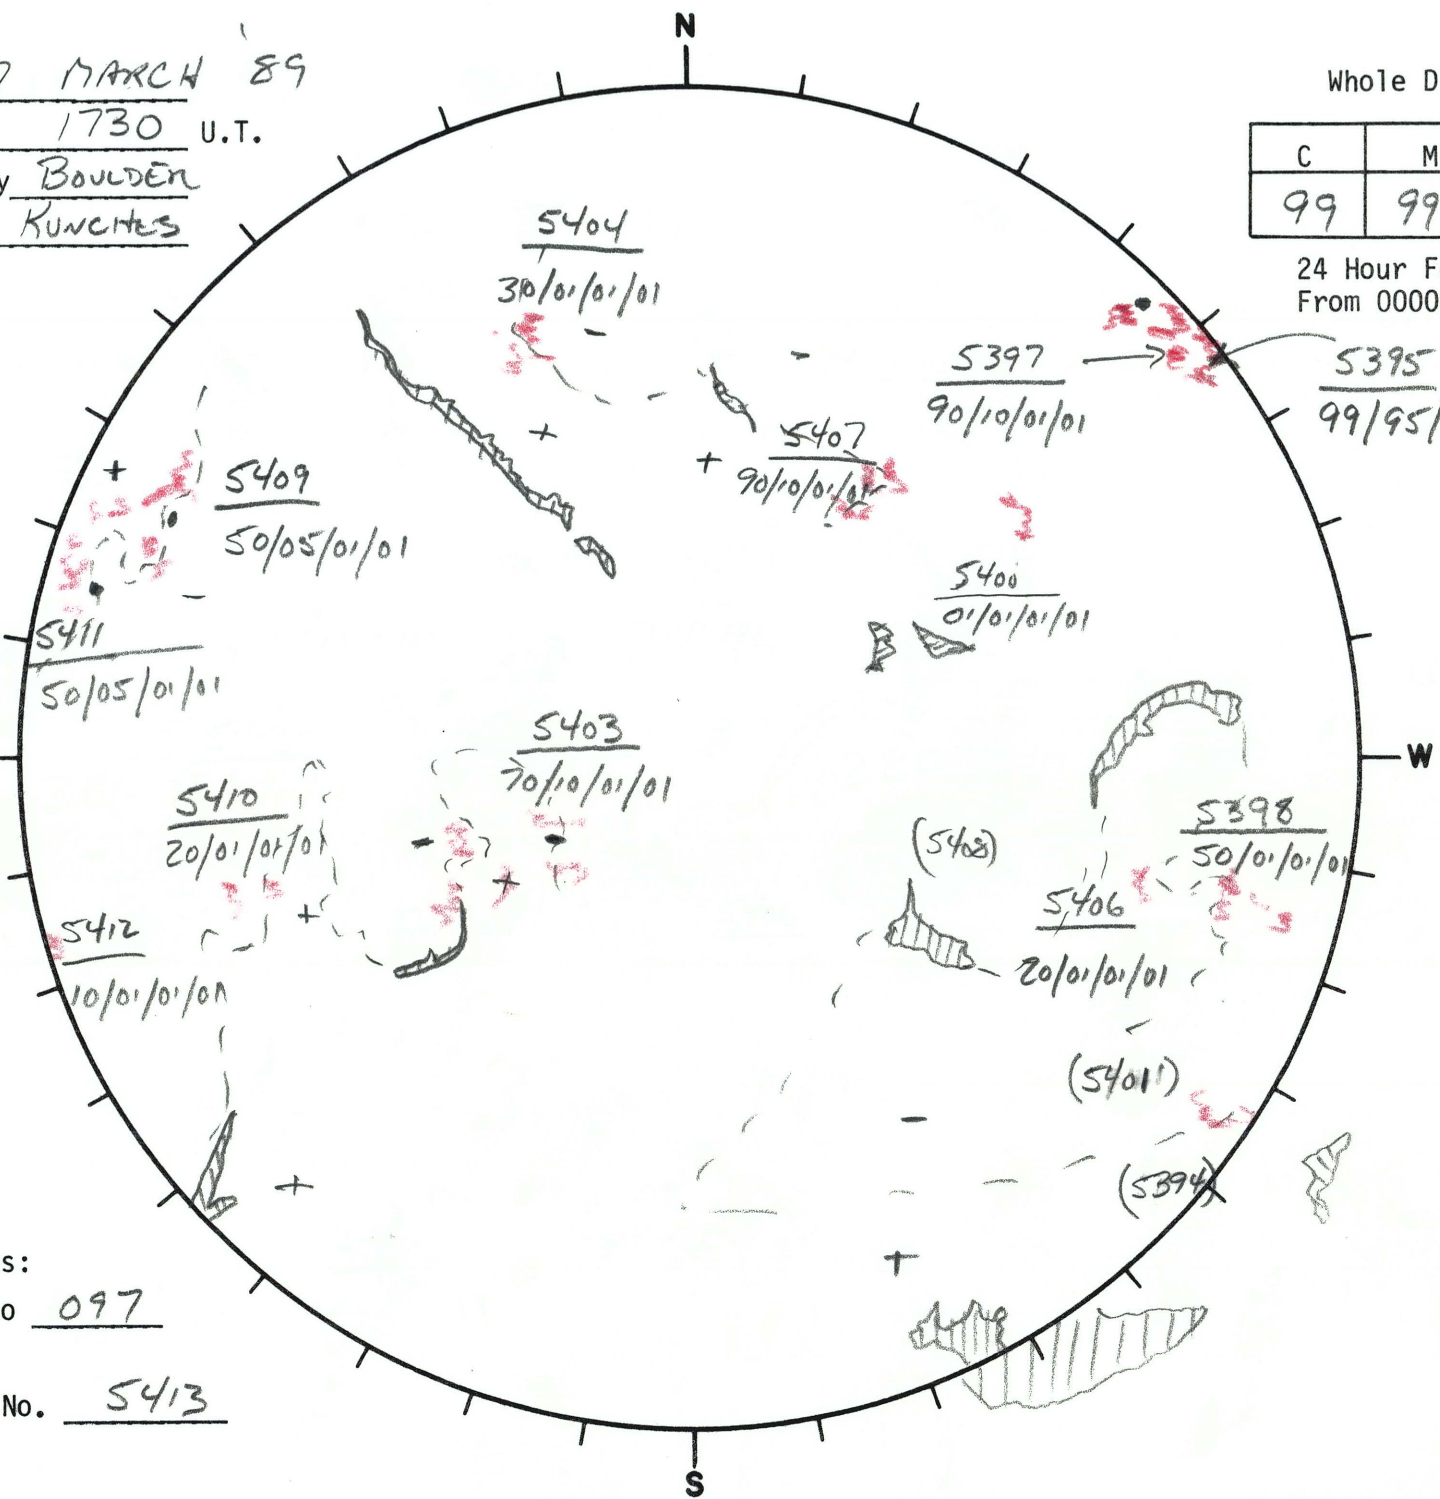 N
MARCH '89
1730 U.T.
BOULDER
KUNCHES
Whole D
C M
99 99
24 Hour F
From 0000
5404
30/01/01/01
5397
90/10/01/01
5395
99/95/
5407
90/10/01/01
5409
50/05/01/01
5400
01/01/01/01
5411
50/05/01/01
5403
70/10/01/01
W
5410
20/01/01/01
5398
50/01/01/01
(5408)
5406
20/01/01/01
5412
10/01/01/01
(5401)
(5394)
s:
o 097
No. 5413
S